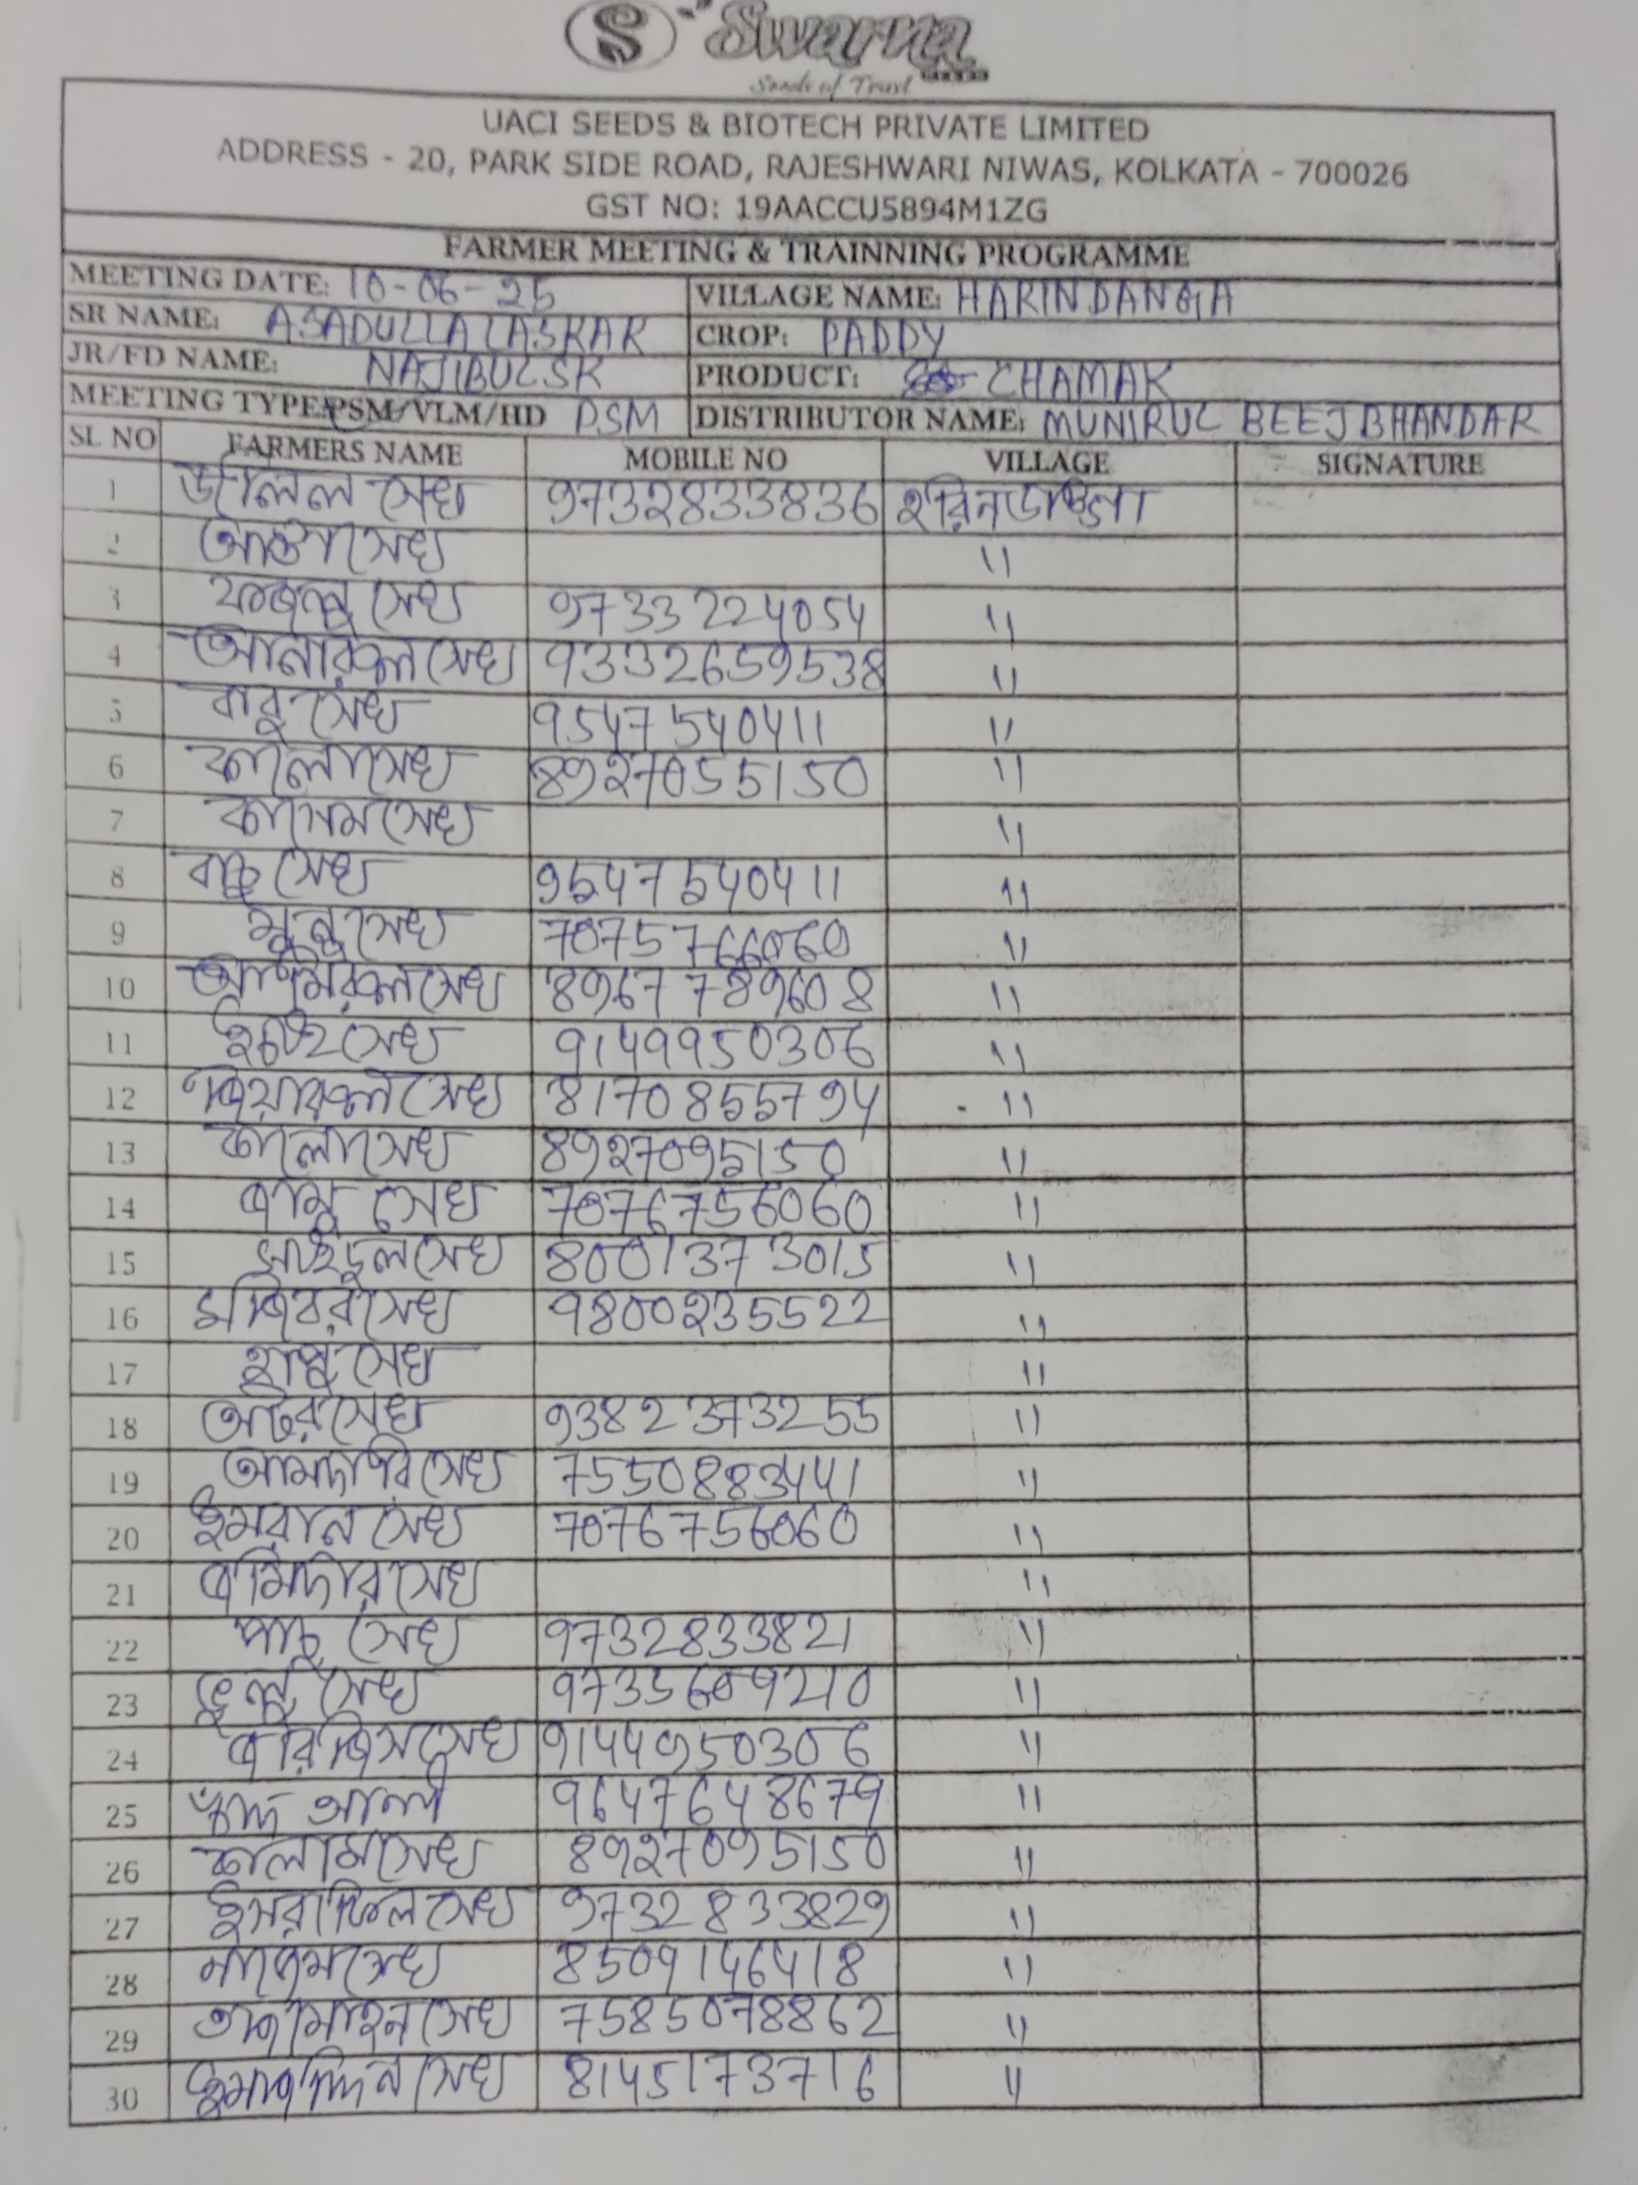 Swarna
Seeds of Trust
UACI SEEDS & BIOTECH PRIVATE LIMITED
ADDRESS - 20, PARK SIDE ROAD, RAJESHWARI NIWAS, KOLKATA - 700026
GST NO: 19AACCU5894M1ZG
FARMER MEETING & TRAINNING PROGRAMME
MEETING DATE: 10-06-25 VILLAGE NAME: HARINDANGA
SR NAME: ASADULLA LASKAR CROP: PADDY
JR/FD NAME: NAJIBUL SK PRODUCT: CHAMAK
MEETING TYPE: PSM/VLM/HD PSM DISTRIBUTOR NAME: MUNIRUL BEEJ BHANDAR
SL NO FARMERS NAME MOBILE NO VILLAGE SIGNATURE
1 জলিল সেখ 9732833836 হরিনডাঙ্গা
2 সেখ 11
3 ফজলু সেখ 9733224054 11
4 আনারুল সেখ 9332659538 11
5 বাবু সেখ 9547540411 11
6 কালো সেখ 8927055150 11
7 কাসেম সেখ 11
8 বাচ্চু সেখ 9547540411 11
9 সেখ 11
10 সেখ 8967789608 11
11 সেখ 9149950306 11
12 জিয়ারুল সেখ 8170855794 11
13 কালো সেখ 8927095150 11
14 সেখ 7076756060 11
15 সাইদুল সেখ 8001373015 11
16 মজিবর সেখ 9800235522 11
17 সেখ 11
18 সেখ 9382373255 11
19 সেখ 7550883441 11
20 ইমরান সেখ 7076756060 11
21 জমিদার সেখ 11
22 পাচু সেখ 9732833821 11
23 ভুলু সেখ 9735609210 11
24 সেখ 9144950306 11
25 আলী 9647648679 11
26 কালাম সেখ 8927095150 11
27 ইসরাফিল সেখ 9732833829 11
28 সেখ 8509146418 11
29 সেখ 7585078862 11
30 সেখ 8145173716 11